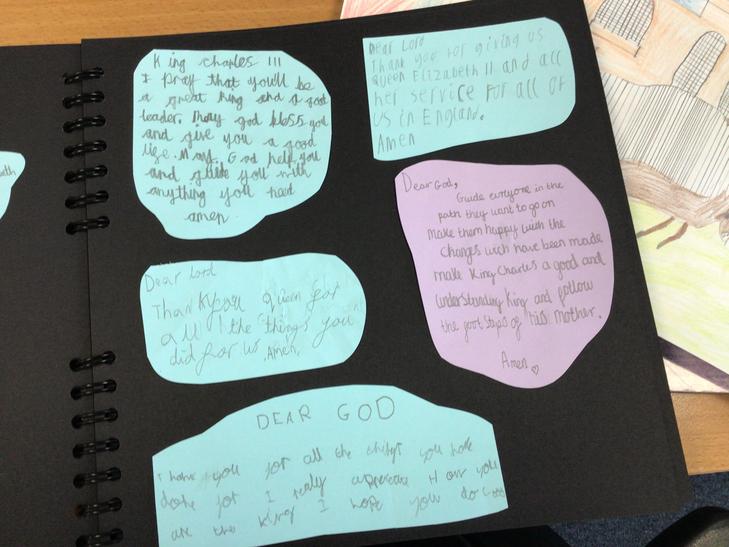 King charles III
I pray that you'll be
a great king and a good
leader. May god bless you
and give you a good
life. May God help you
and guide you with
anything you need
amen
Dear Lord
Thank you for giving us
Queen Elizabeth II and all
her service for all of
us in England.
Amen
Dear God,
Guide everyone in the
path they want to go on
Make them happy with the
changes wich have been made
make King Charles a good and
understanding king and follow
the foot steps of his mother.
Amen
Dear Lord
Thankyou queen for
all the things you
did for us Amen.
DEAR GOD
you for all the things you have
done for I really How you
are the King I hope you do Good